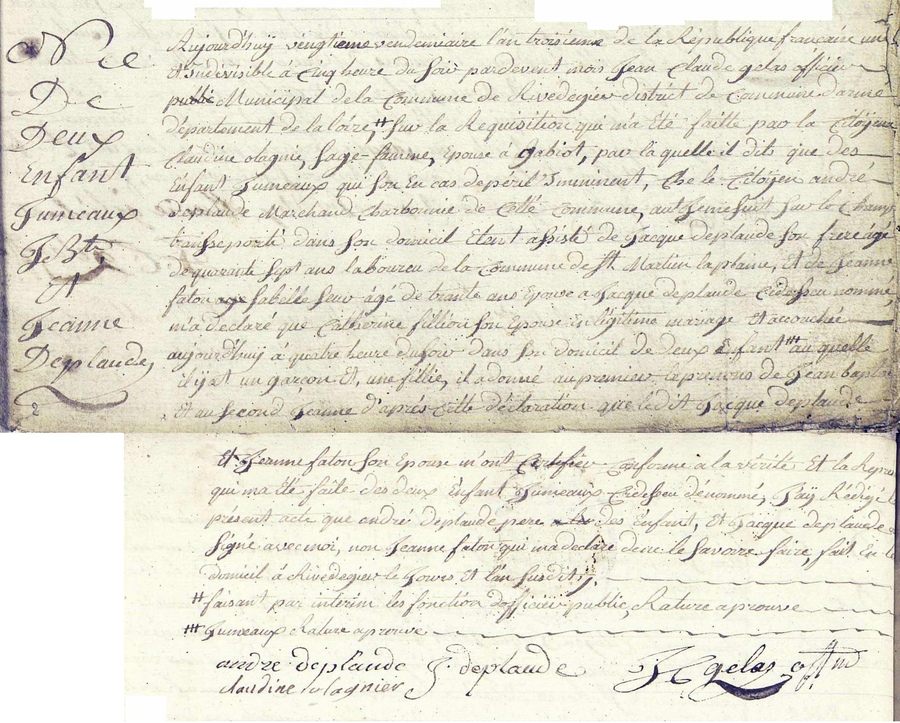 Née
De
Deux
Enfant
Jumeaux
J. Bte
Et
Jeanne
Deplaude
2
Aujourd'huy vengtieme vendemiaire l'an troisieme de la République francaine une
Et indivisible à Cinq heure du Soir pardevent mois Jean Claude gelas officier
public Municipal de la Commune de Rivedegier district de Commune d'arme
département de la loire, # Sur la Requisition qui m'a Eté faitte par la Citoyene
Claudine olagnié, Sage-famme, Epouse à gabiot, par laquelle il dits que des
Enfant Jumeaux qui Son En cas depéril iminnent, Che le Citoyen andré
deplaude Marchand Charbonnie de Cette Commune, transseporté dans Son domicil Etent assisté de Jacque deplaude Son frere agé
de quarante Sept ans laboureu de la Commune de St Martin laplaine, Et de Jeanne
faton sabellée Seur agé de trante ans Epouse a Jacque deplaude Cidesseu nommé,
m'a declaré que Catherine fillion Son Epouse En légitime mariage Et accouchée
aujourd'huy à quatre heure du Soir dans Son domicil de deux Enfant ### au quelle
il y at un garçon Et, une fillie, il a donné au premier le prenons de Jean baptis
Et au Second Jeanne d'aprés Cette déclaration que le dit Jacque deplaude
Et Jeanne faton Son Epouse m'ont Certifier Conforme a la vérité Et la Repre
qui ma Eté faite des deux Enfant Jumeaux Cidesseu dénommé, J'ay Rédigé l
présent acte que andré deplaude pere des Enfant, Et Jacque deplaude
Signé avec moi, non Jeanne faton qui ma declare de ne le Savoire faire, fait En le
domicil à Rivedegier le Jours Et l'an Susdit,
# faisant par interim les fonction d'officier public, Rature aprouve
### Jumeaux Rature aprouve
andre deplaude J. deplaude JC gelas offm
claudine olagnier